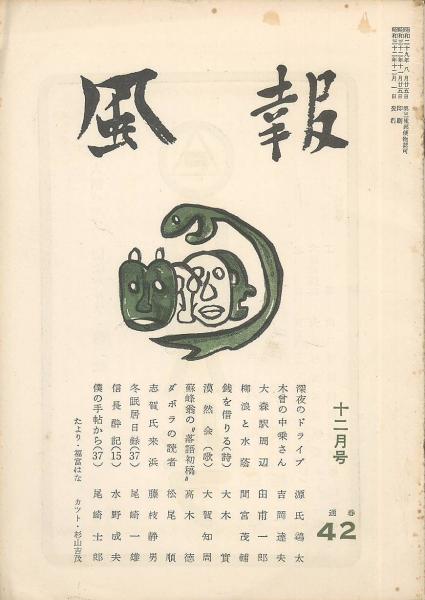 風報
昭和二十九年八月廿五日 第三種郵便物認可
昭和三十二年十一月廿五日 印刷
昭和三十二年十二月一日 発行
十二月号
通巻
42
深夜のドライブ 源氏鶏太
木曾の中乗さん 吉岡達夫
大森駅周辺 田甫一郎
柳浪と水蔭 間宮茂輔
銭を借りる(詩) 大木實
漠然会(歌) 大賀知周
蘇峰翁の〝落語初稿〟 高木徳
ダボラの読者 松尾順
志賀氏来浜 藤枝静男
冬眠居日録(37) 尾崎一雄
信長酔記(15) 水野成夫
僕の手帖から(37) 尾崎士郎
たより・福富はな
カツト・杉山吉茂